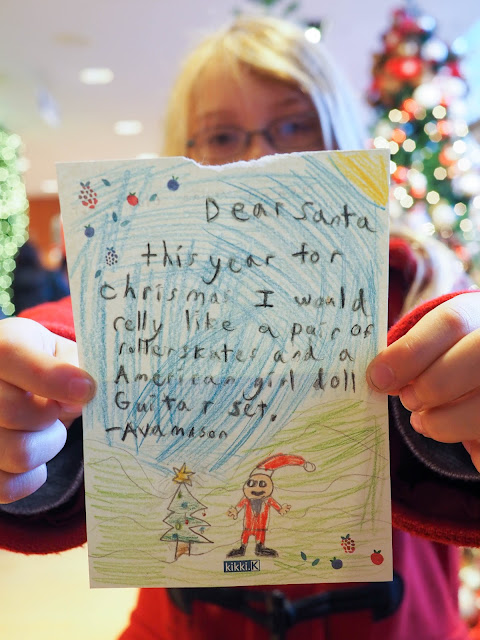 Dear santa
this year for
chrismas I would
relly like a pair of
rollerskates and a
American girl doll
Guitar set.
-Ava mason
kikki.K